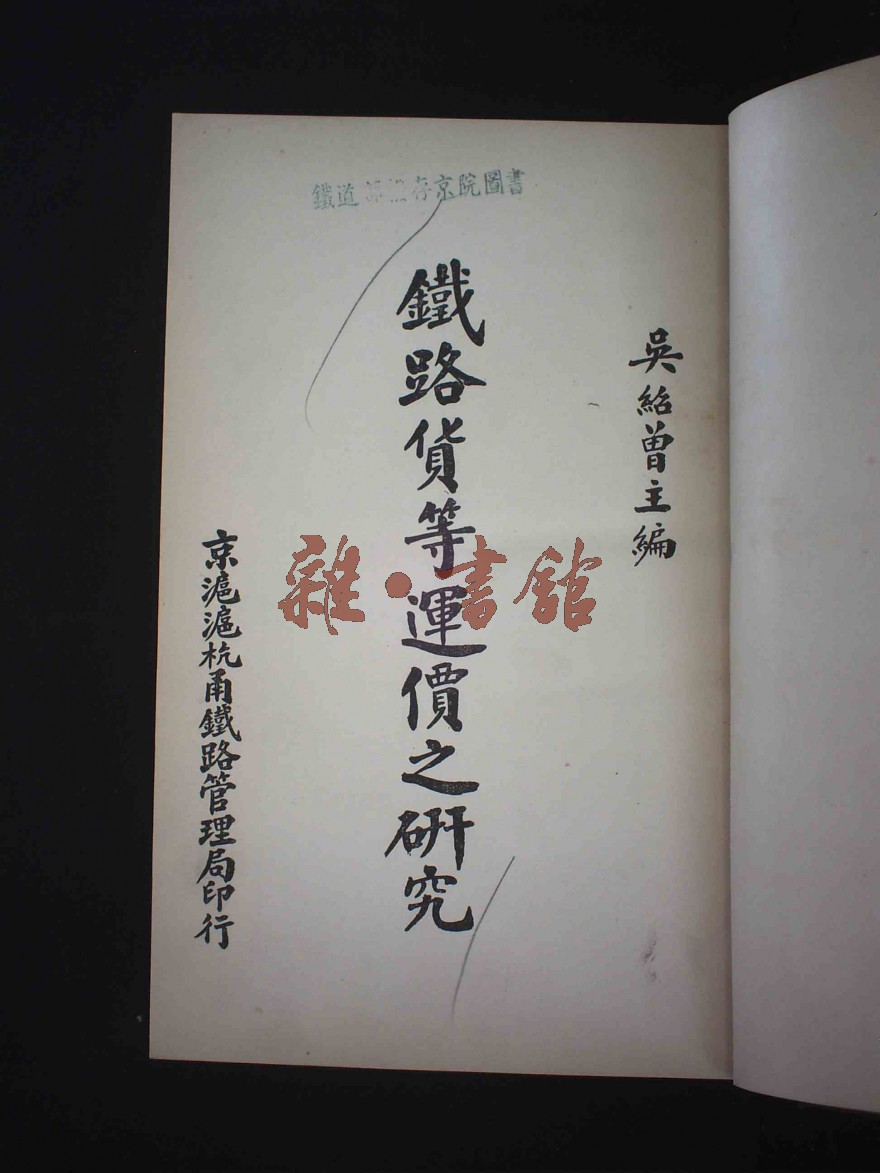 吳紹曾主編
鐵路貨等運價之硏究
京滬滬杭甬鐵路管理局印行
鐵道存京院圖書
雜·書館